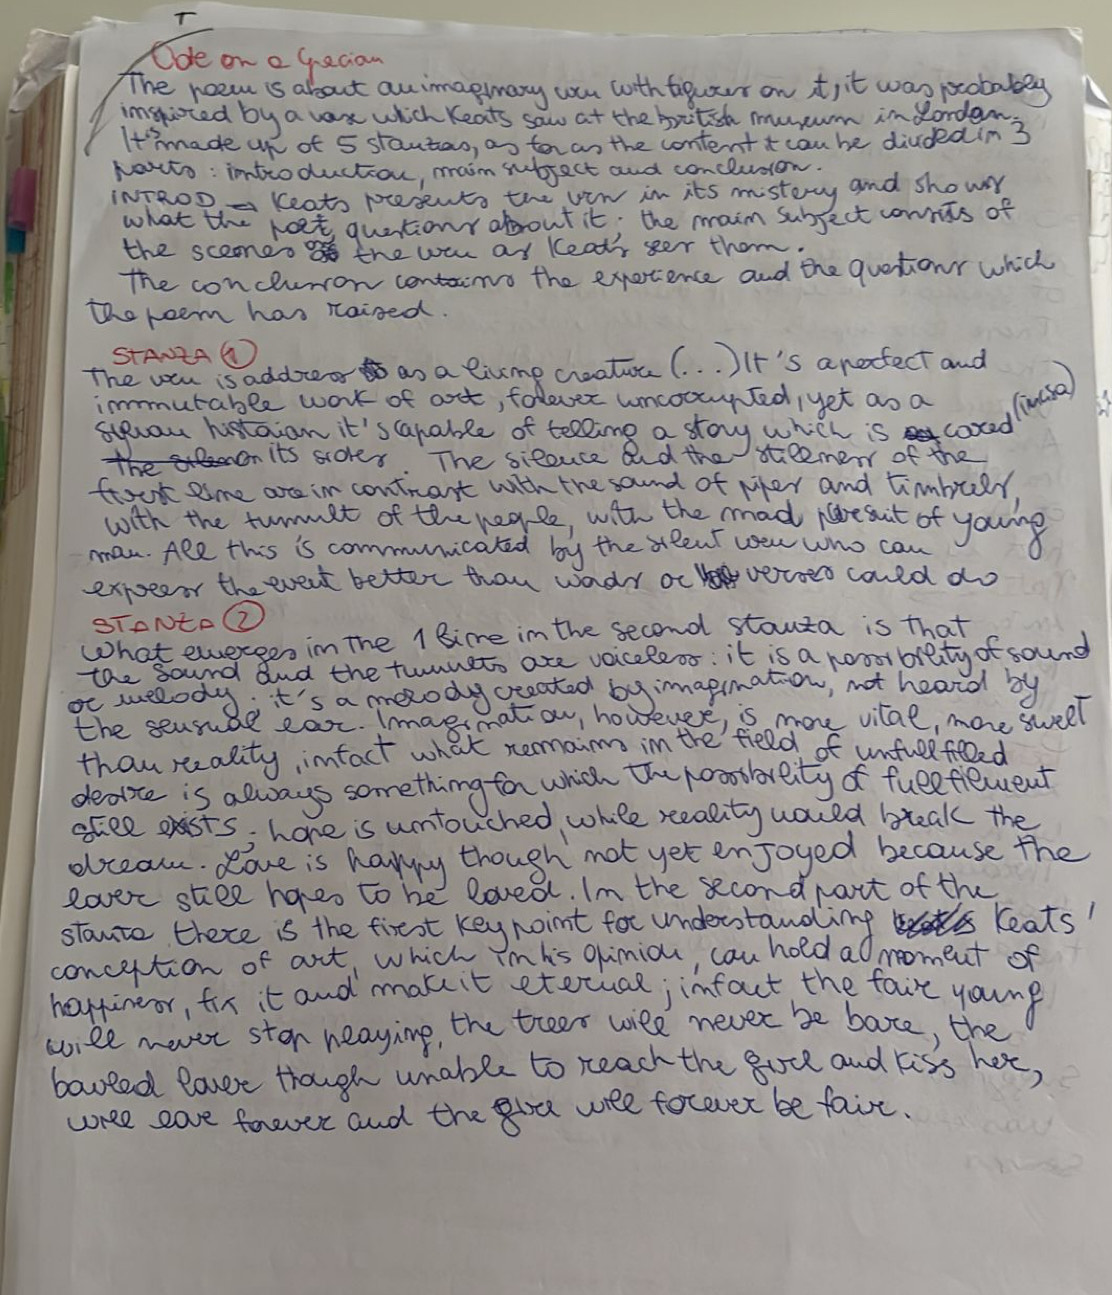 T
Ode on a Grecian
The poem is about an imaginary urn with figures on it, it was probabley
inspired by a vase which Keats saw at the british museum in London.
It's made up of 5 stanzas, as for as the content it can be divided in 3
parts: introduction, main subject and conclusion.
INTROD → Keats presents the urn in its mistery and shows
what the poet questions about it; the main subject consits of
the scenes the urn as Keats seer them.
The conclusion contains the experience and the questions which
the poem has raised.
STANZA 1
The urn is address as a living creature (...) It's a perfect and
immutable work of art, forever uncorrupted, yet as a
histoian it's capable of telling a story which is carved, (incisa)
on its sides. The silence and the stillness of the
first lime are in contrast with the sound of pipes and timbrels,
with the tumult of the people, with the mad pursuit of young
man. All this is communicated by the silent urn who can
express the event better than words or verses could do
STANZA 2
What emerges in the 1 line in the second stanza is that
the sound and the tumults are voiceless: it is a possibility of sound
or melody; it's a melody created by imagination, not heard by
the sensual ear. Imagination, however, is more vital, more swelt
than reality, infact what remains in the field of unfullfilled
desire is always something for which the possibility of fullfilment
still exists; hope is untouched, while reality would break the
dream. Love is happy though not yet enjoyed because the
lover still hopes to be loved. In the second part of the
stanza there is the first key point for understanding Keats'
conception of art, which in his opinion, can hold a moment of
happiness, fix it and make it eternal; infact the fair young
will never stop playing, the trees will never be bare, the
lover though unable to reach the girl and kiss her,
will love forever and the girl will forever be fair.